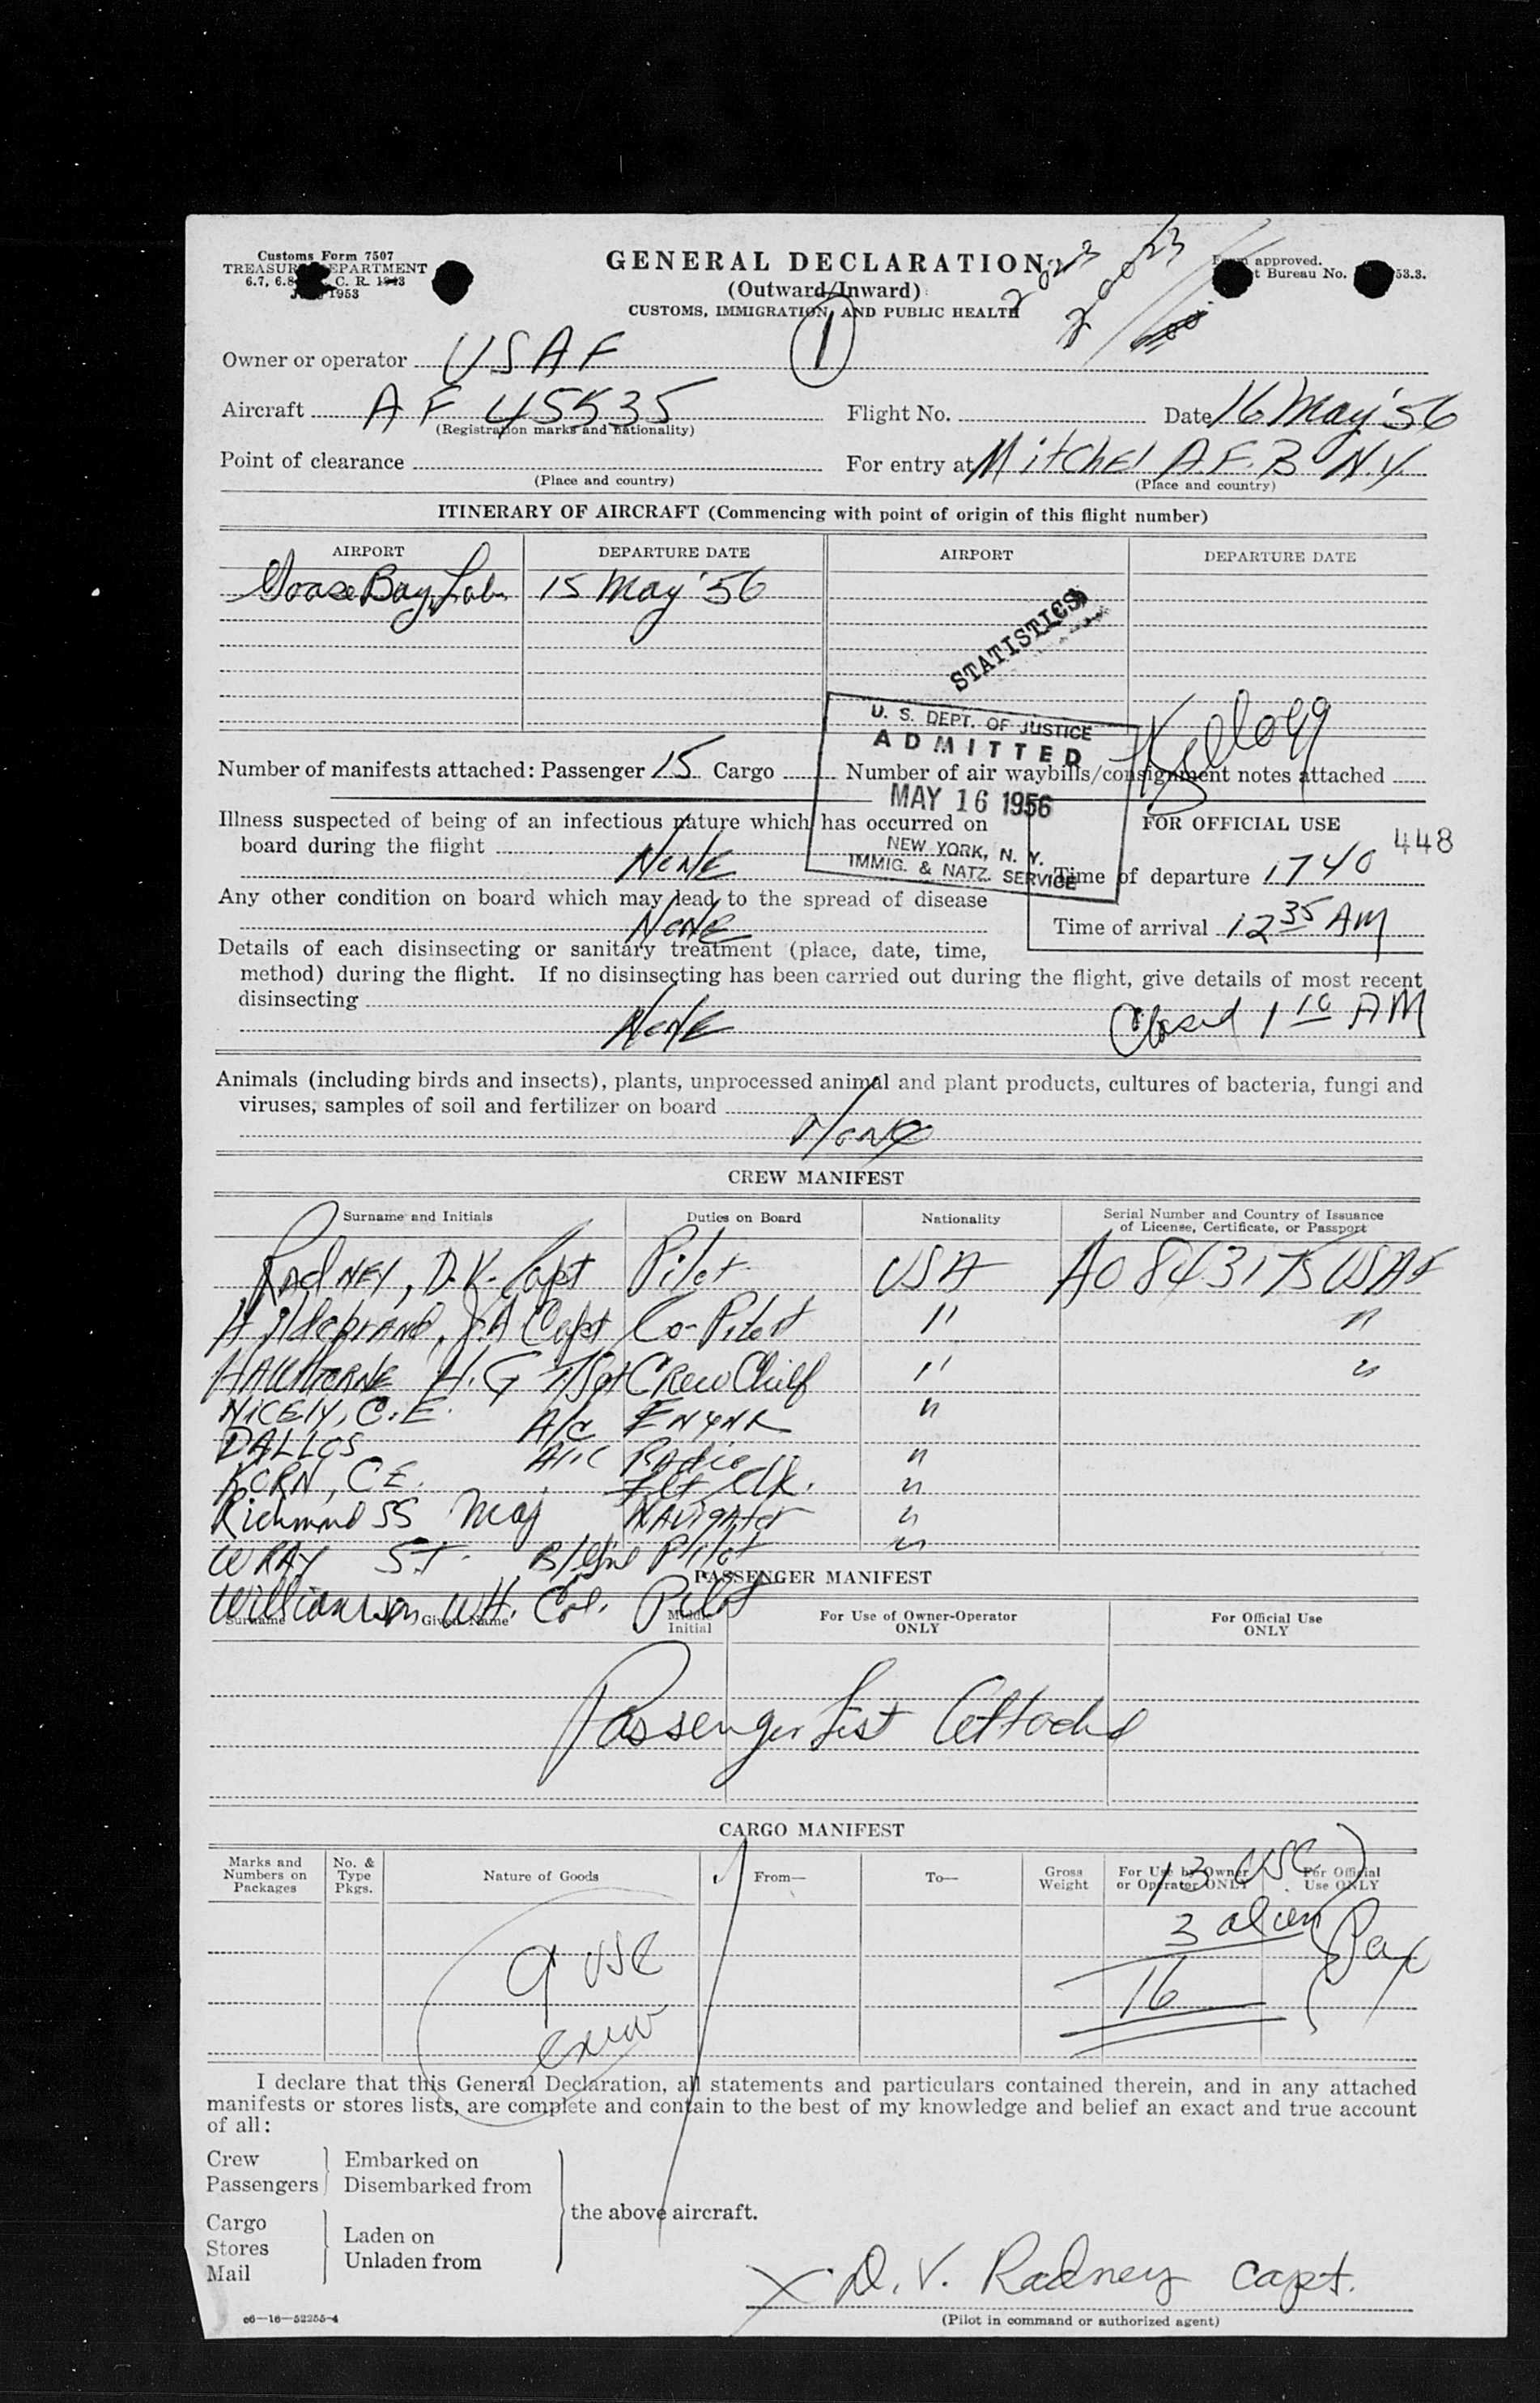 Customs Form 7507
TREASURY DEPARTMENT
6.7, 6.8 C. R. 1943
1953
GENERAL DECLARATION
(Outward/Inward)
CUSTOMS, IMMIGRATION, AND PUBLIC HEALTH
20023
approved.
t Bureau No. 53.3.
1
Owner or operator USAF
Aircraft AF 45535 Flight No. Date 16 May '56
(Registration marks and nationality)
Point of clearance For entry at Mitchel A.F.B N.Y.
(Place and country) (Place and country)
ITINERARY OF AIRCRAFT (Commencing with point of origin of this flight number)
AIRPORT DEPARTURE DATE AIRPORT DEPARTURE DATE
Goose Bay, Lab. 15 May '56
STATISTICS
U. S. DEPT. OF JUSTICE
ADMITTED
MAY 16 1956
NEW YORK, N. Y.
IMMIG. & NATZ. SERVICE
Kellogg
Number of manifests attached: Passenger 15 Cargo Number of air waybills/consignment notes attached
Illness suspected of being of an infectious nature which has occurred on
board during the flight
None
FOR OFFICIAL USE
448
Time of departure 1740
Any other condition on board which may lead to the spread of disease
None
Time of arrival 12 35 AM
Details of each disinsecting or sanitary treatment (place, date, time,
method) during the flight. If no disinsecting has been carried out during the flight, give details of most recent
disinsecting
None
Closed 1 10 AM
Animals (including birds and insects), plants, unprocessed animal and plant products, cultures of bacteria, fungi and
viruses, samples of soil and fertilizer on board
None
CREW MANIFEST
Surname and Initials Duties on Board Nationality Serial Number and Country of Issuance
of License, Certificate, or Passport
Radney, D.V. Capt Pilot USA AO 843175 USAF
Hildebrand, J.A Capt Co-Pilot " "
HAWTHORNE H.G T/Sgt Crew Chief " "
Nicely, C.E. A/C Engnr "
DALLOS A/1C Radio "
KORN, C.E. Flt Clk. "
Richmond SS Maj Navigator "
WRAY S.T. B/Gnl Pilot "
Williamson, W.H. Col. Pilot
PASSENGER MANIFEST
Surname Given Name Middle
Initial For Use of Owner-Operator
ONLY For Official Use
ONLY
Passenger List Attached
CARGO MANIFEST
Marks and
Numbers on
Packages No. &
Type
Pkgs. Nature of Goods From— To— Gross
Weight For Use by Owner
or Operator ONLY For Official
Use ONLY
13 USC
3 alien
16
Pax
9 USC
crew
I declare that this General Declaration, all statements and particulars contained therein, and in any attached
manifests or stores lists, are complete and contain to the best of my knowledge and belief an exact and true account
of all:
Crew Embarked on
Passengers Disembarked from
the above aircraft.
Cargo
Stores Laden on
Mail Unladen from
X D. V. Radney Capt.
(Pilot in command or authorized agent)
c6—16—52255-4